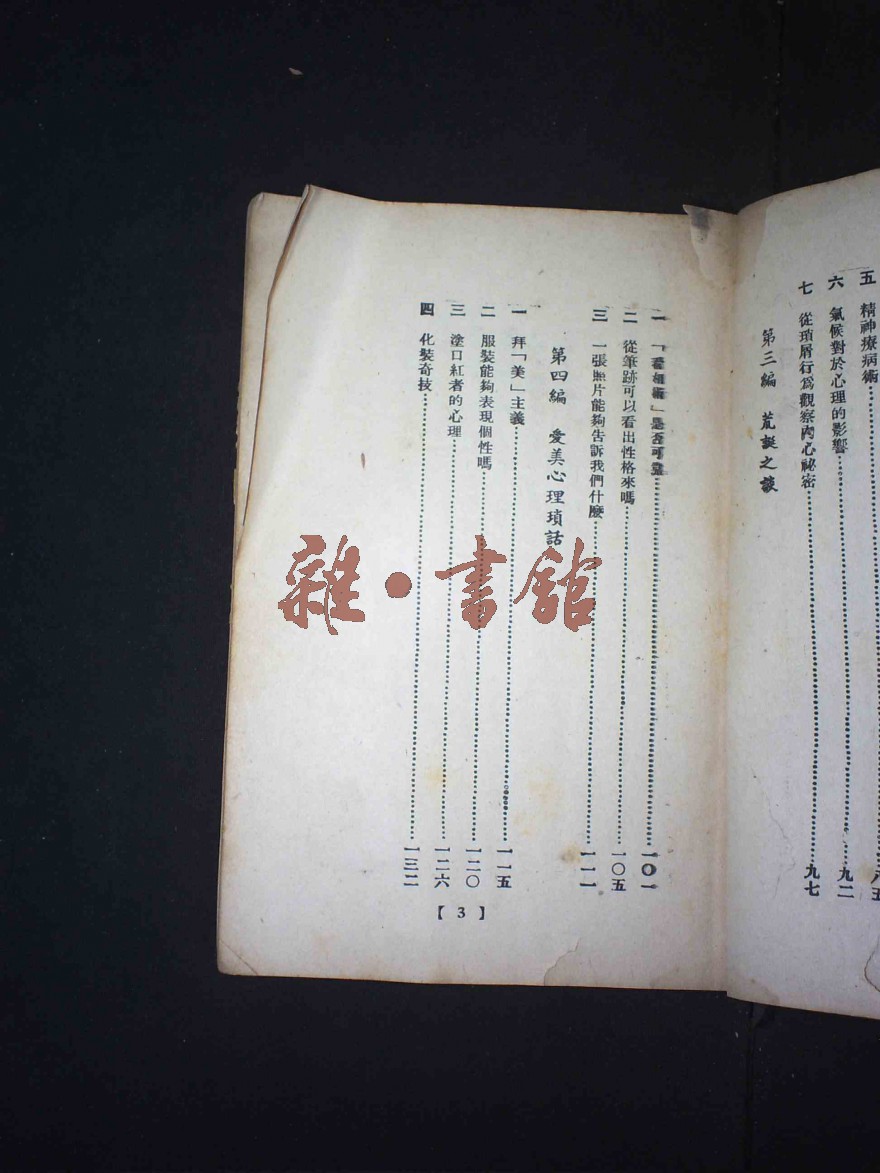 五 精神療病術……八五
六 氣候對於心理的影響……九二
七 從瑣屑行爲觀察內心祕密……九七
第三編 荒誕之談
一 「看相術」是否可靠……一〇一
二 從筆跡可以看出性格來嗎……一〇五
三 一張照片能夠告訴我們什麼……一一一
第四編 愛美心理瑣話
一 拜「美」主義……一一五
二 服裝能夠表現個性嗎……一二〇
三 塗口紅者的心理……一二六
四 化裝奇技……一三二
【3】
雜·書館